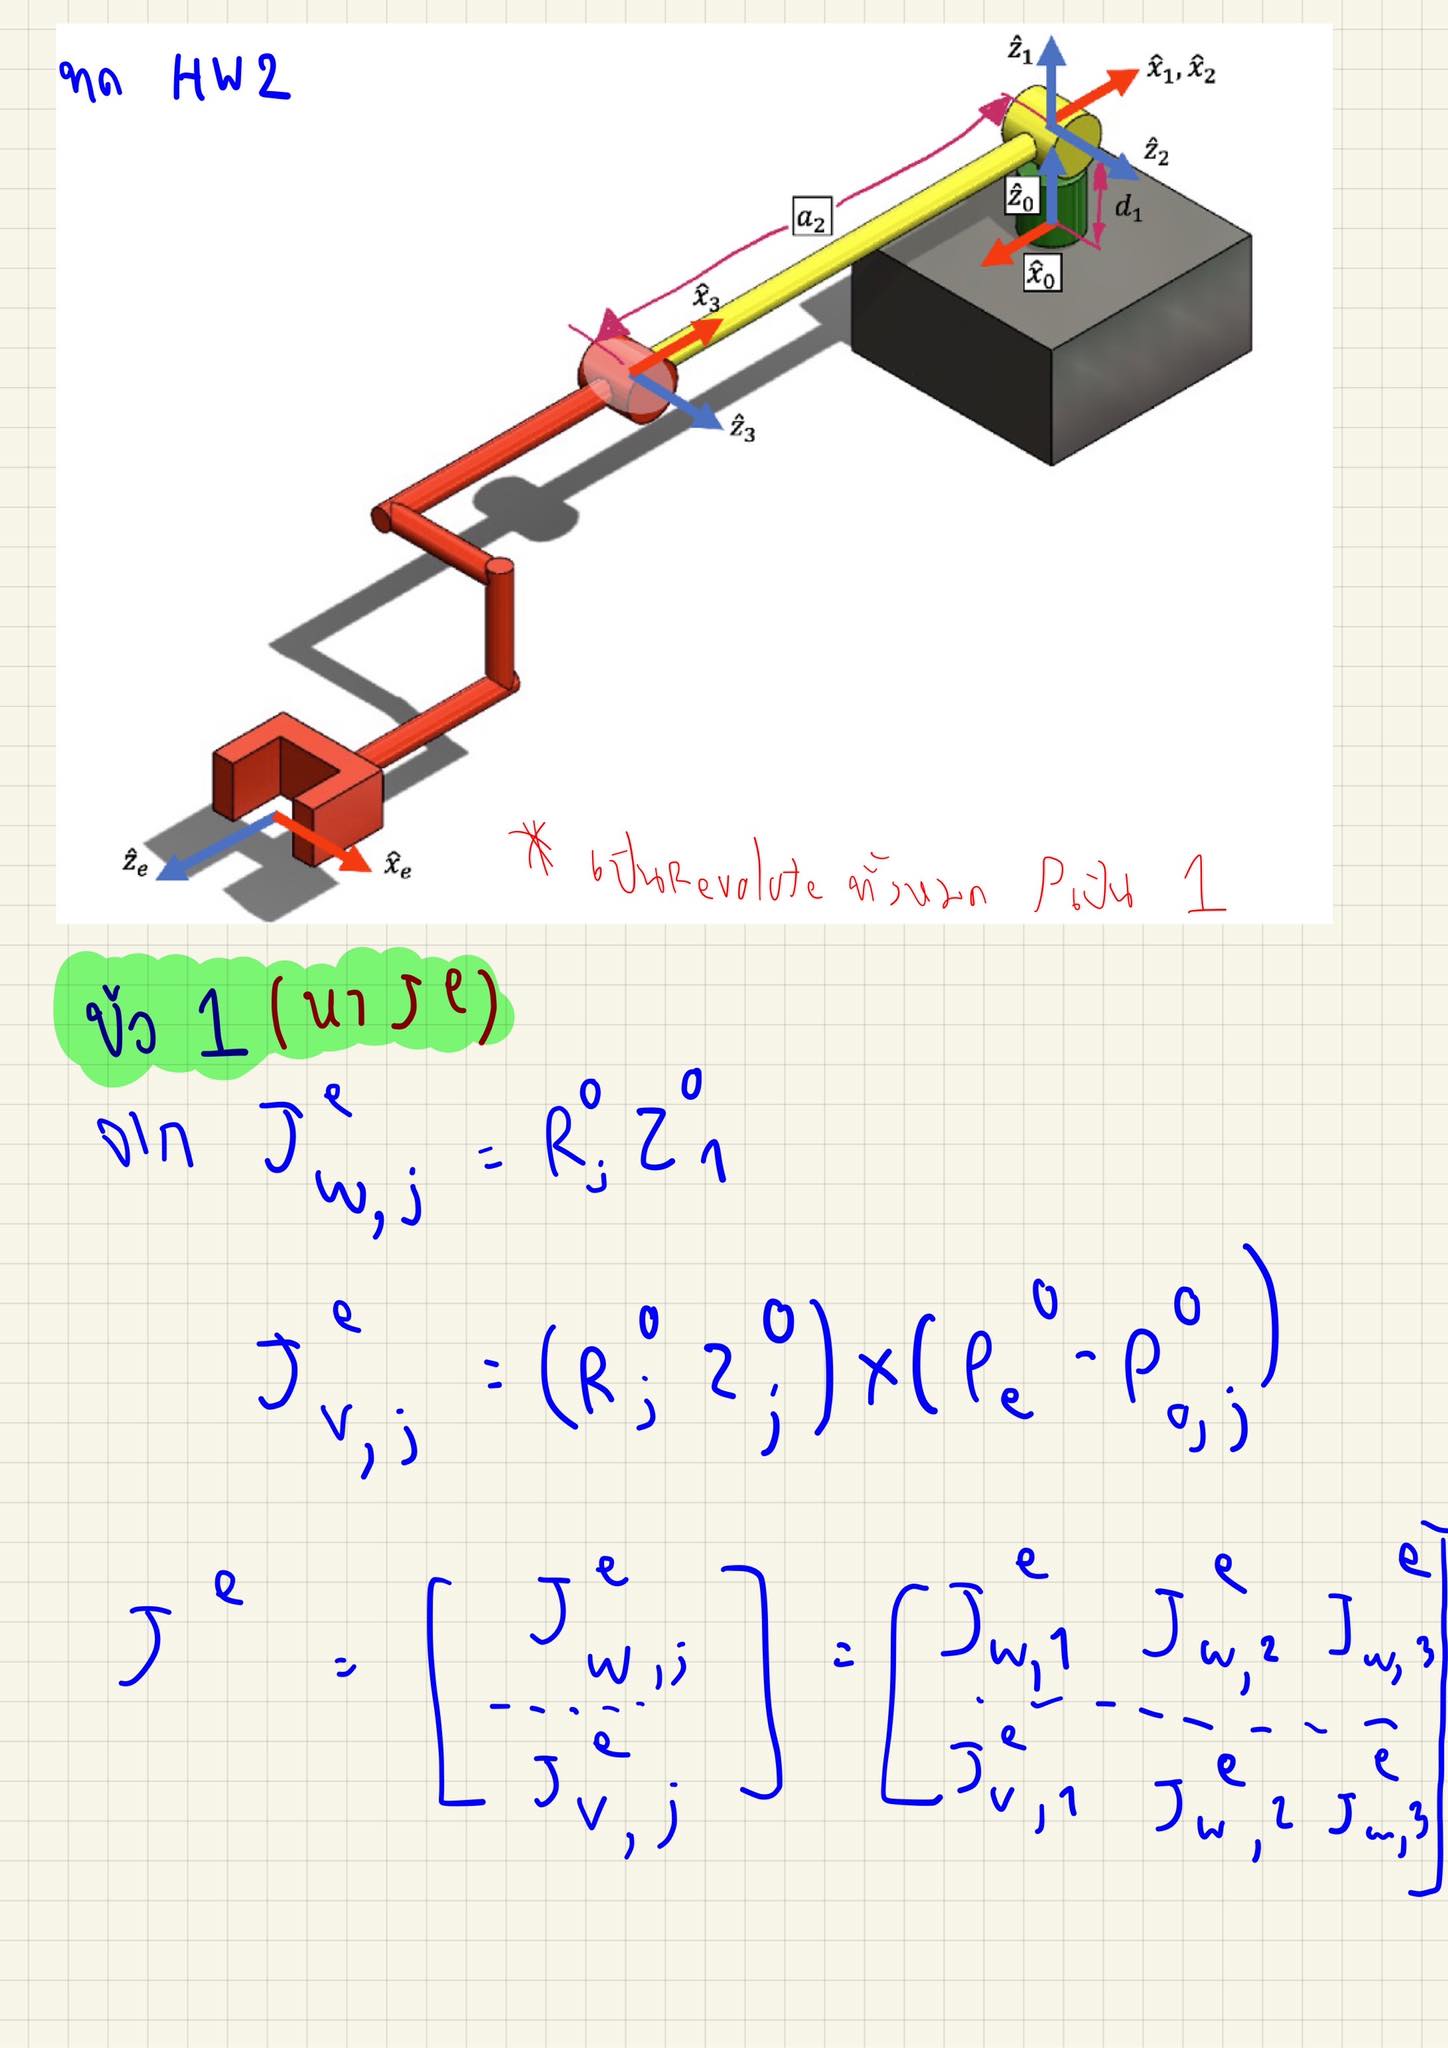 ทด HW2
ẑ₁
x̂₁, x̂₂
ẑ₂
ẑ₀
d₁
x̂₀
a₂
x̂₃
ẑ₃
ẑₑ
x̂ₑ
* เป็นRevolute ทั้งหมด ρเป็น 1
ข้อ 1 (หา Jᵉ)
จาก J^e_{w,j} = R^0_j Z^0_1
J^e_{v,j} = (R^0_j Z^0_j) × (P^0_e - P^0_{0,j})
J^e = [ J^e_{w,j} ] = [ J^e_{w,1} J^e_{w,2} J^e_{w,3} ]
[ J^e_{v,j} ] [ J^e_{v,1} J^e_{w,2} J^e_{w,3} ]